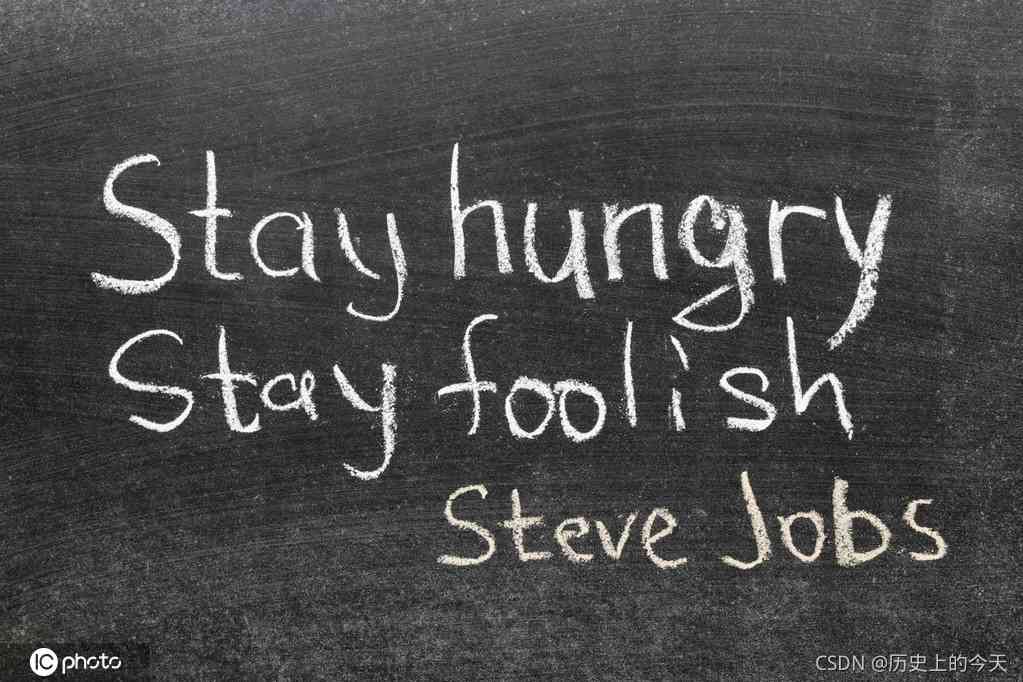 Stay hungry
Stay foolish
Steve Jobs
IC photo
CSDN @历史上的今天